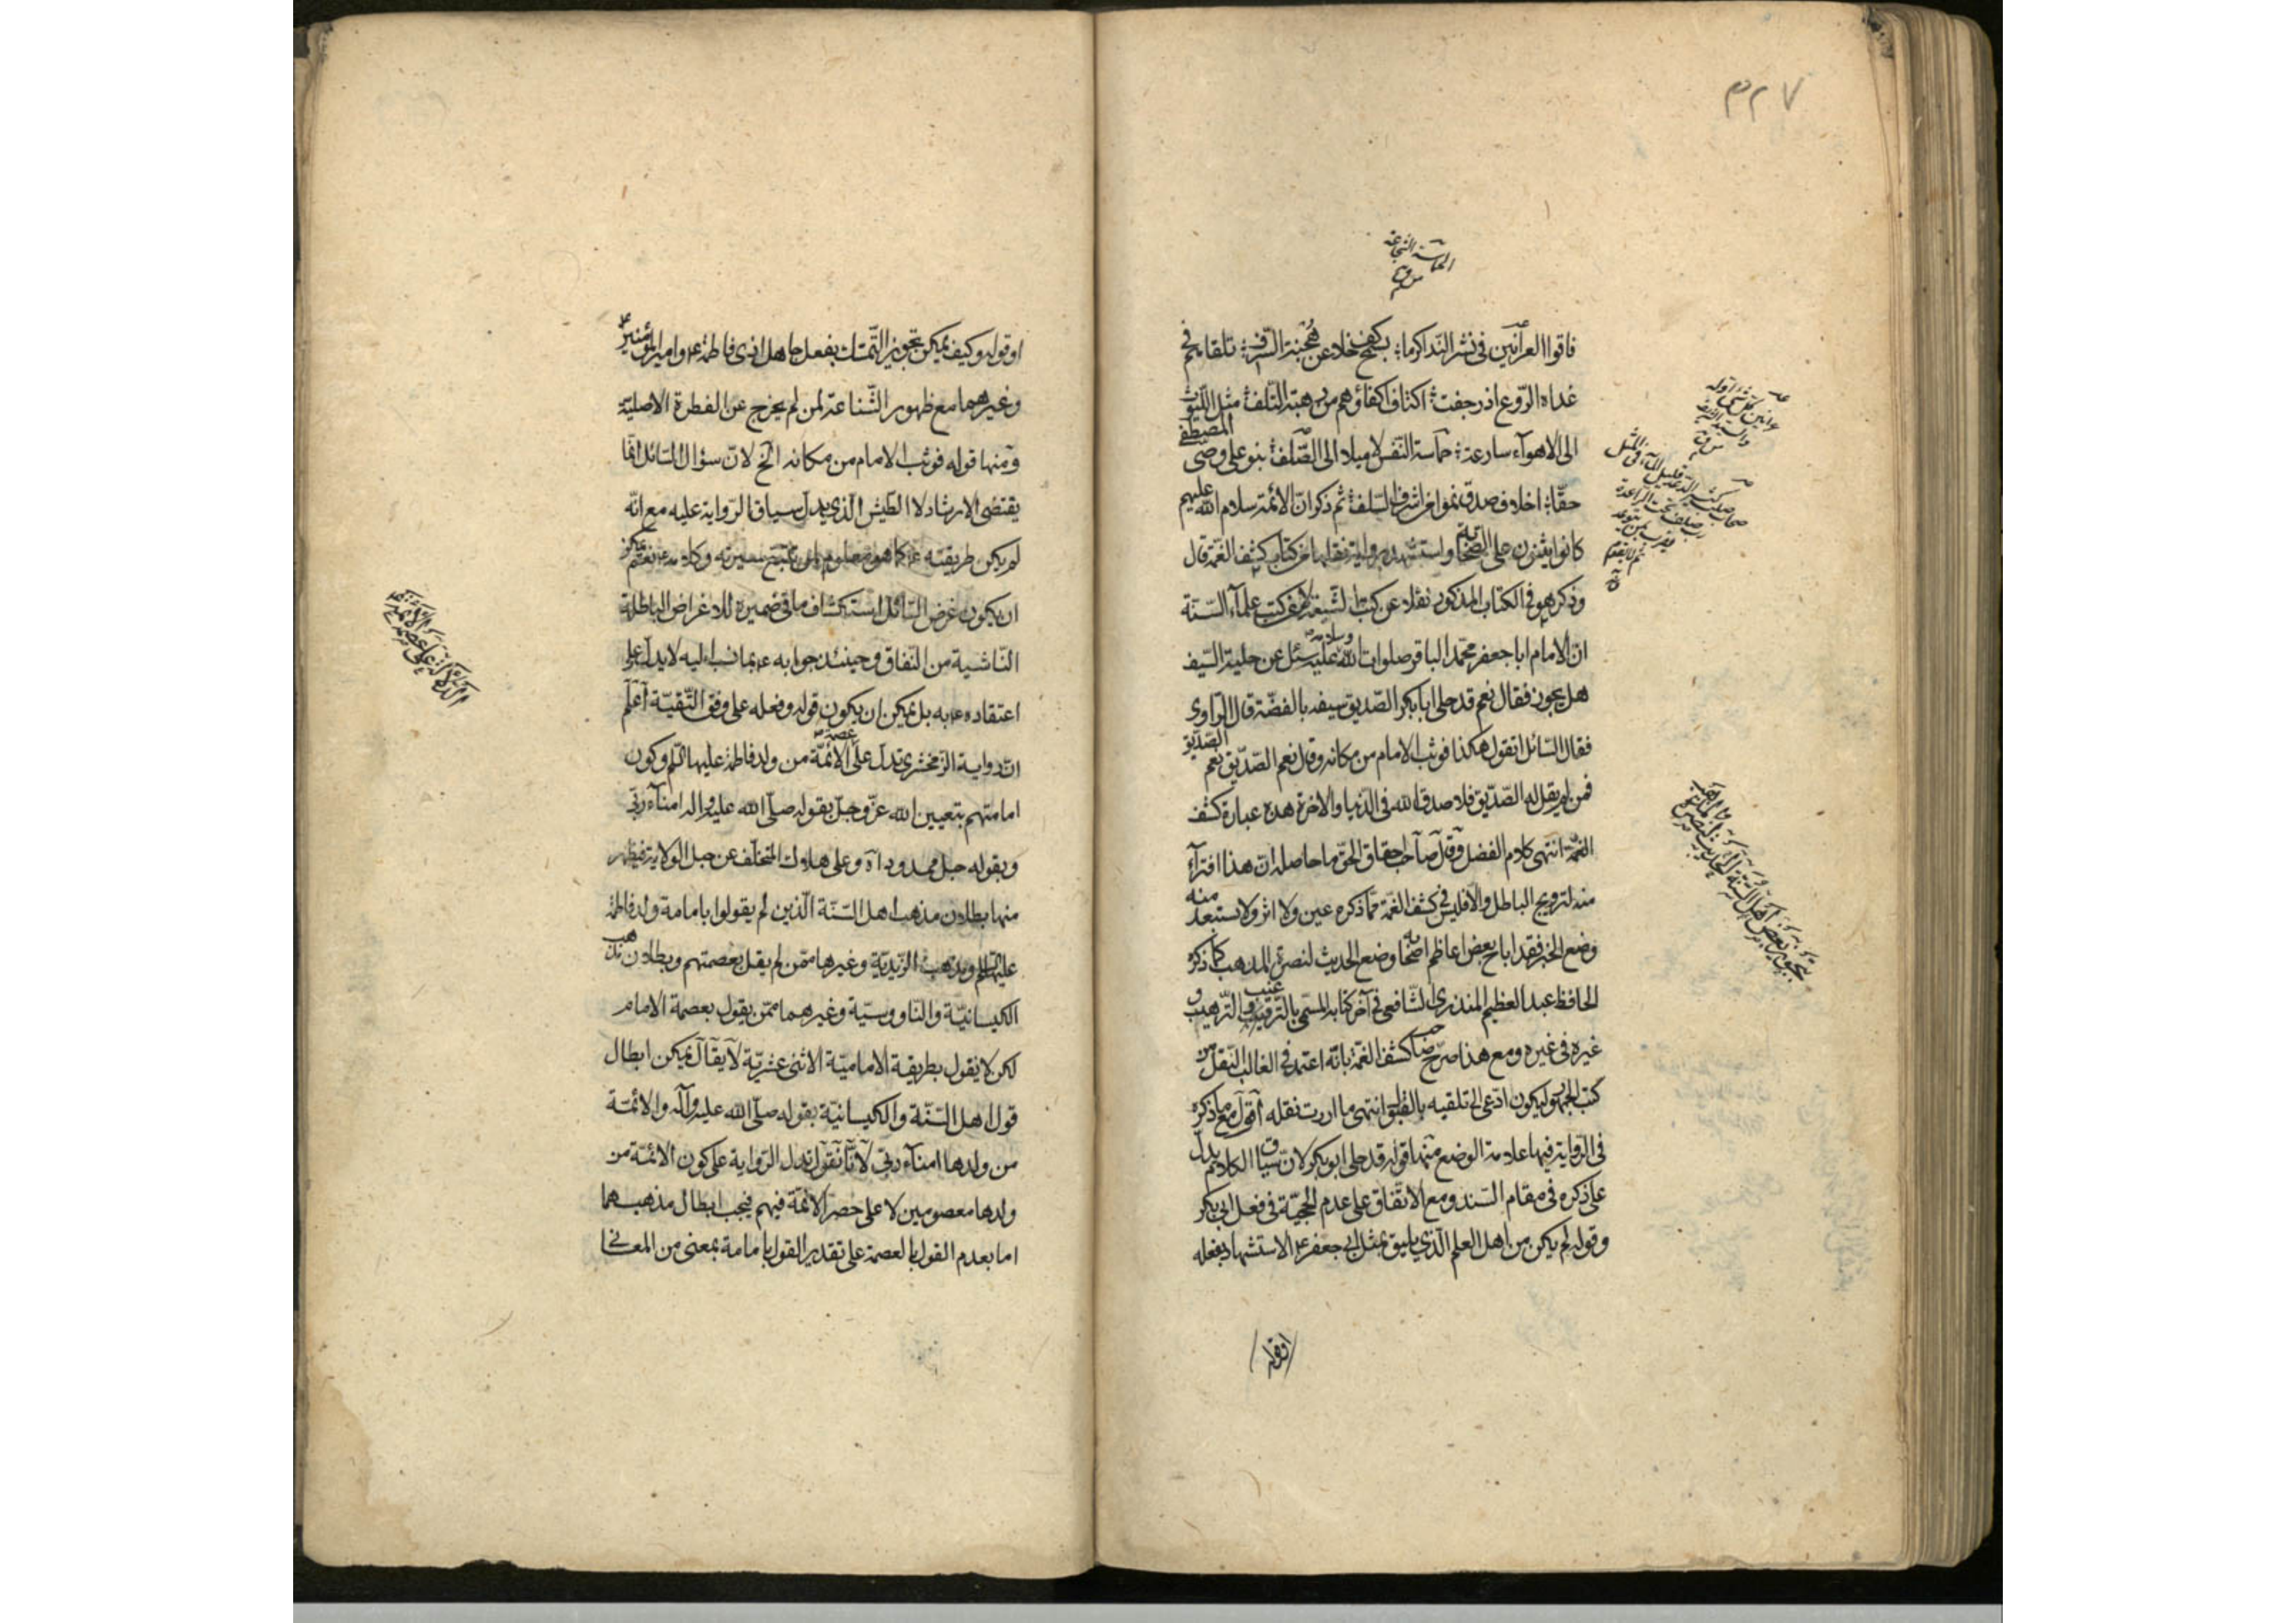 ٣٢٧
الحماسة الشجاعة
فاقوا العرانين في نشر الندا كرما بكهف خلا عن هجنة السرف تلقاهم في
غداه الروع اذ رجفت اكتاف اكفاؤهم من رهبة التلف مثل الليوث
الى الاهوآء سارعة حماسة النفس لا ميلا الى الصلف بنو على وصى المصطفى
حقا اخلاف صدق نموا من اشرف السلف ثم ذكر ان الائمة سلام الله عليهم
كانوا يثنون على الصحابة واستشهد برواية نقلها من كتاب كشف الغمة قال
وذكر هو في الكتاب المذكور نقلا عن كتب الشيعة لا من كتب علمآء السنة
ان الامام ابا جعفر محمد الباقر صلوات الله وسلامه عليه سئل عن حلية السيف
هل يجوز فقال نعم قد حلى ابا بكر الصديق سيفه بالفضة قال الراوى
فقال السائل اتقول هكذا فوثب الامام من مكانه وقال نعم الصديق نعم الصديق
فمن لم يقل له الصديق فلا صدق الله في الدنيا والاخرة هذه عبارة كشف
الغمة انتهى كلام الفضل وقال صاحب احقاق الحق ما حاصله ان هذا افترآء
منه لترويج الباطل والا فليس في كشف الغمة مما ذكره عين ولا اثر ولا يستبعد منه
وضع الخبر فقد اباح بعض اعاظم اصحابه وضع الحديث لنصرة المذهب كما ذكره
الحافظ عبد العظيم المنذرى الشافعي في آخر كتابه المسمى بالترغيب والترهيب و
غيره في غيره ومع هذا صرح صاحب كشف الغمة بانه اعتمد في الغالب النقل من
كتب الجمهور ليكون ادعى الى تلقيه بالقبول انتهى ما اردت نقله اقول مع ما ذكره
في الرواية فيها علامة الوضع منها قوله قد حلى ابو بكر لان سياق الكلام يدل
على ذكره في مقام السند ومع الاتفاق على عدم الحجية في فعل ابى بكر
وقوله لم يكن من اهل العلم الذي يليق بمثل ابى جعفر ع الاستشهاد بفعله
او قوله
تجويز بعض اهل السنة وضع الحديث لنصرة المذهب
او قوله وكيف يمكن تجويز التمسك بفعل جاهل اذى فاطمة ع وامير المؤمنين ع
وغيرهما مع ظهور الشناعة لمن لم يخرج عن الفطرة الاصلية
ومنها قوله فوثب الامام من مكانه الخ لان سؤال السائل انما
يقتضى الارشاد لا الطيش الذي يدل سياق الرواية عليه مع انه
لم يكن طريقته ع كما هو معلوم لمن تتبع سيرته وكلامه ع نعم يمكن
ان يكون غرض السائل استكشاف ما في ضميره للاغراض الباطلة
الناشية من النفاق وحينئذ جوابه ع بما نسب اليه لا يدل على
اعتقاده ع به بل يمكن ان يكون قوله وفعله على وفق التقية اعلم
ان رواية الزمخشرى تدل على عصمة الائمة من ولد فاطمة عليها السلم وكون
امامتهم بتعيين الله عز وجل بقوله صلى الله عليه واله امنآء ربى
وبقوله حبل ممدود اه وعلى هلاك المتخلف عن حبل الولاية فيظهر
منها بطلان مذهب اهل السنة الذين لم يقولوا بامامة ولد فاطمة
عليها السلم ومذهب الزيدية وغيرها ممن لم يقل بعصمتهم وبطلان مذهب
الكيسانية والناووسية وغيرهما ممن يقول بعصمة الامام
لكن لا يقول بطريقة الامامية الاثنى عشرية لا يقال يمكن ابطال
قول اهل السنة والكيسانية بقوله صلى الله عليه وآله والائمة
من ولدها امنآء ربى لانا نقول تدل الرواية على كون الائمة من
ولدها معصومين لا على حصر الائمة فيهم فيجب ابطال مذهبهما
اما بعدم القول بالعصمة على تقدير القول بامامة بمعنى من المعانى
الدلالة على عصمة الائمة